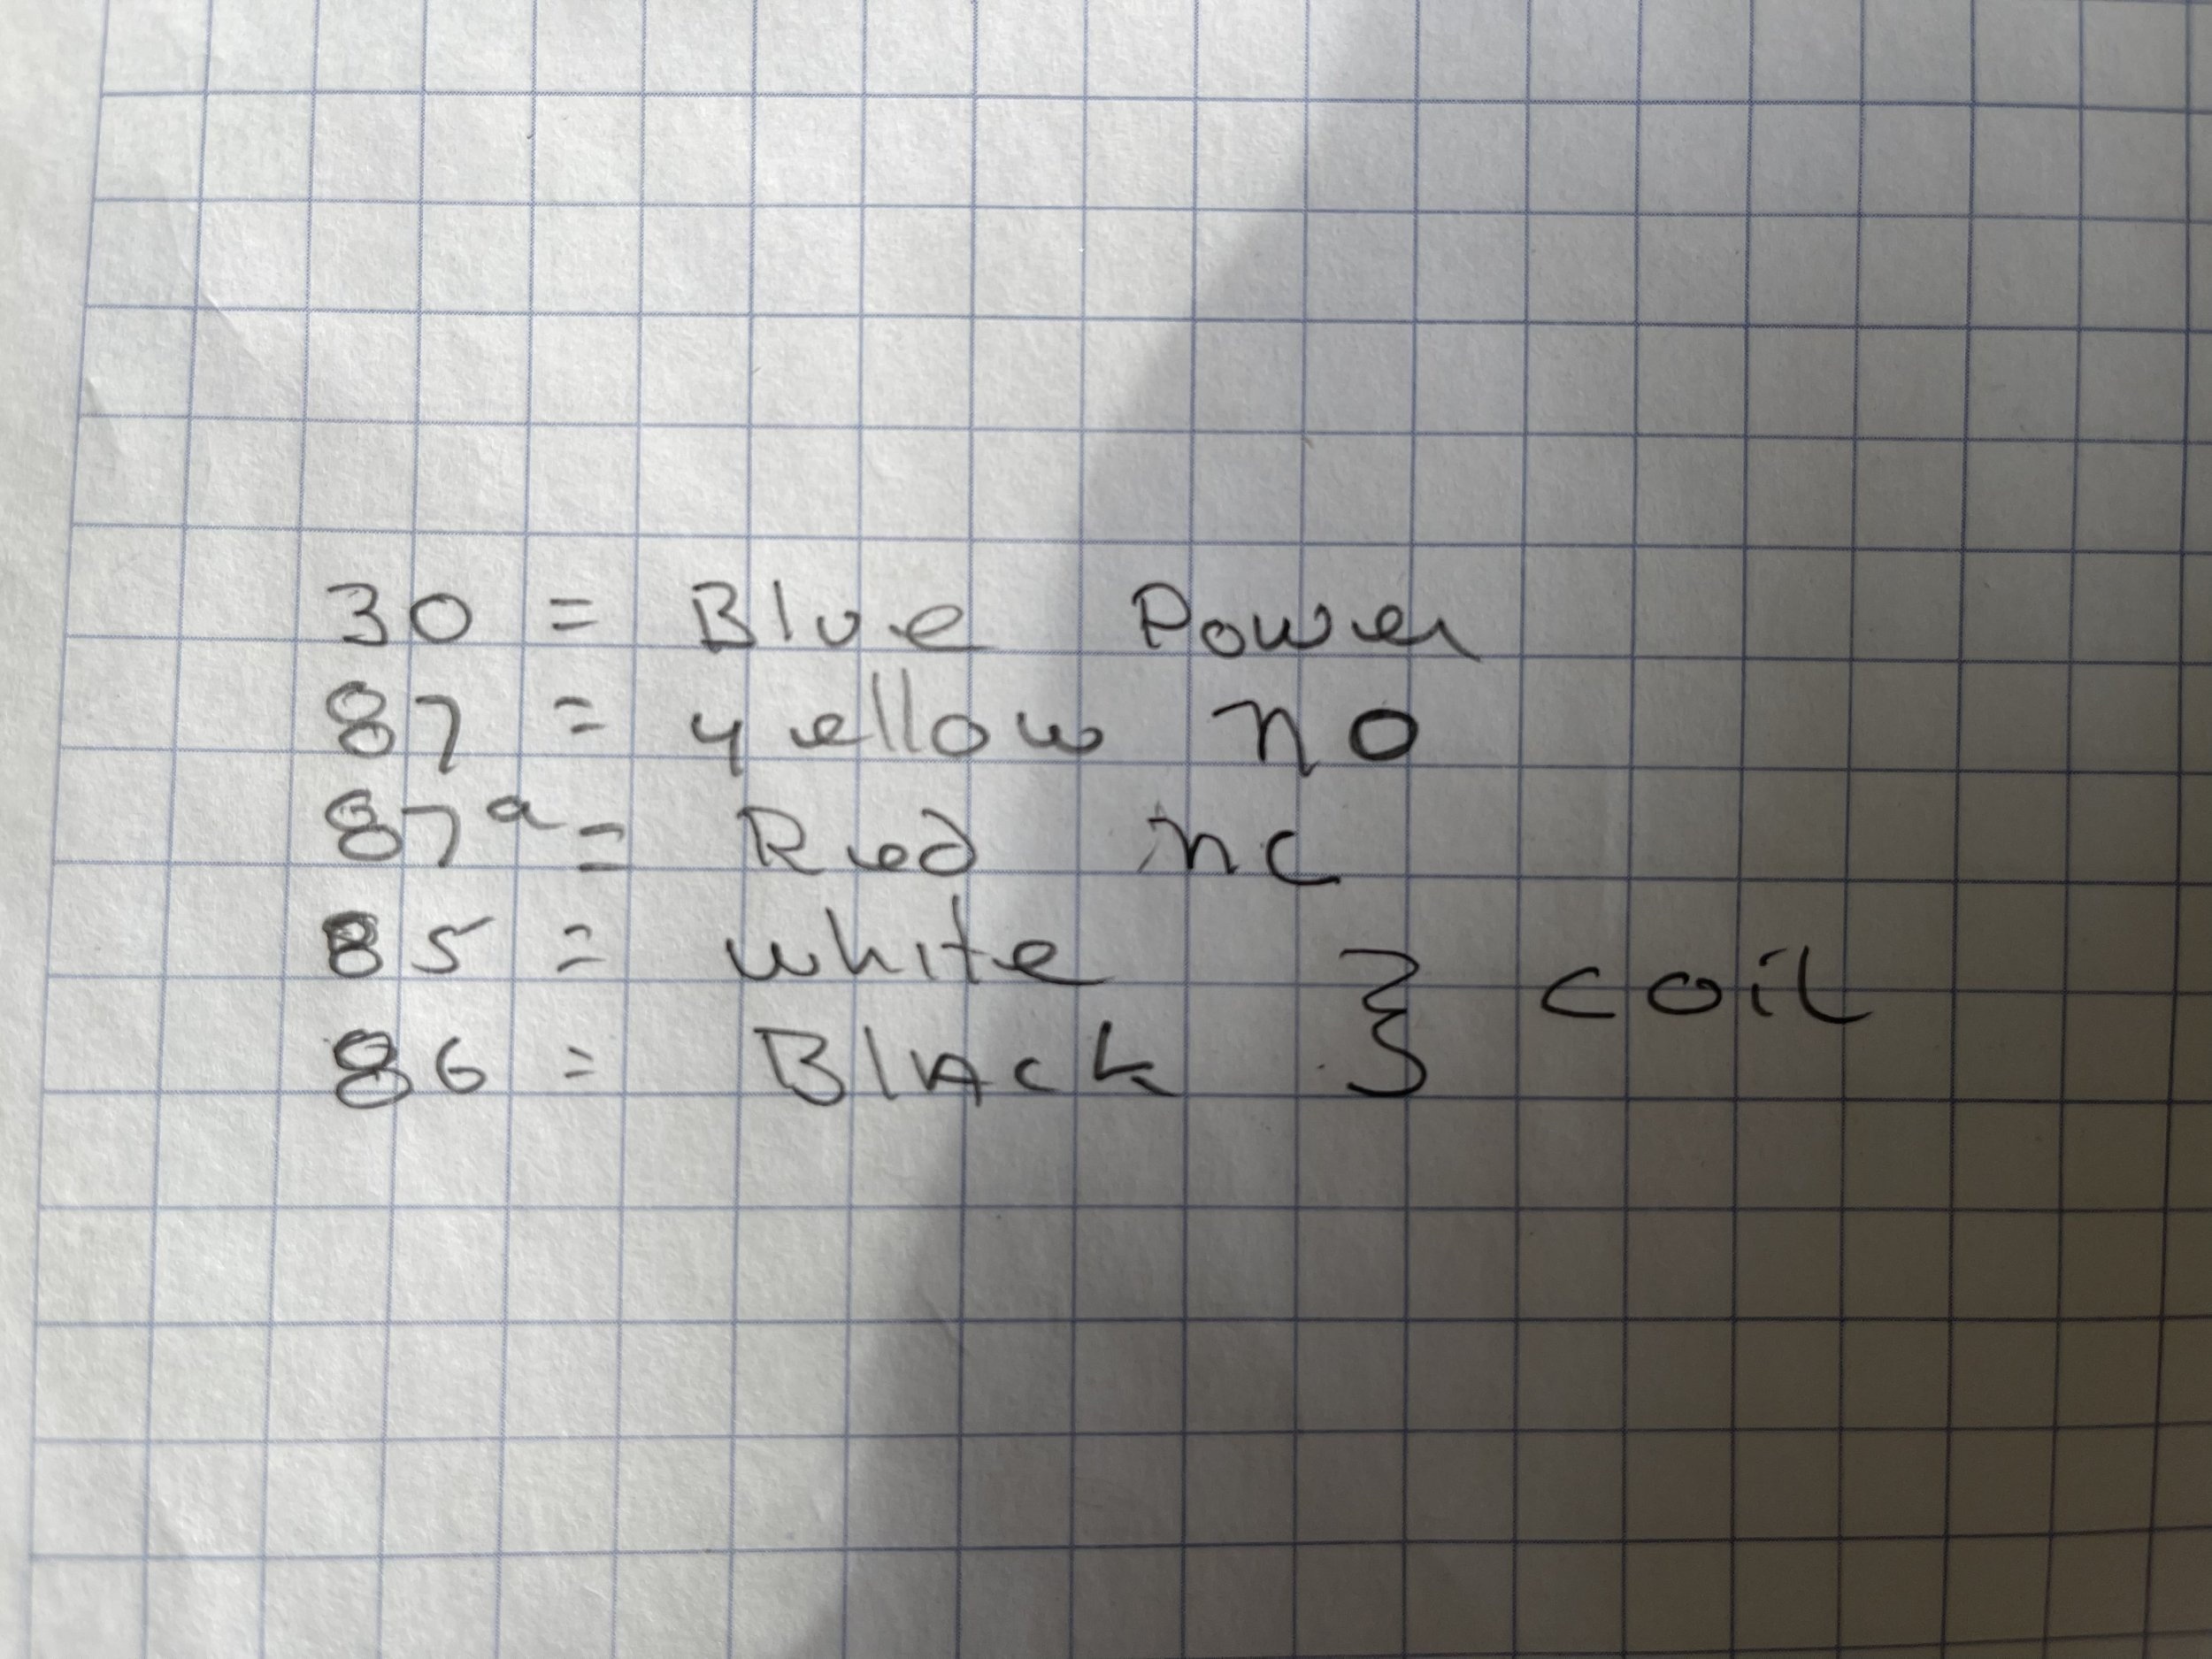 30 = Blue Power
87 = yellow no
87a = Red nc
85 = white } coil
86 = BlAck